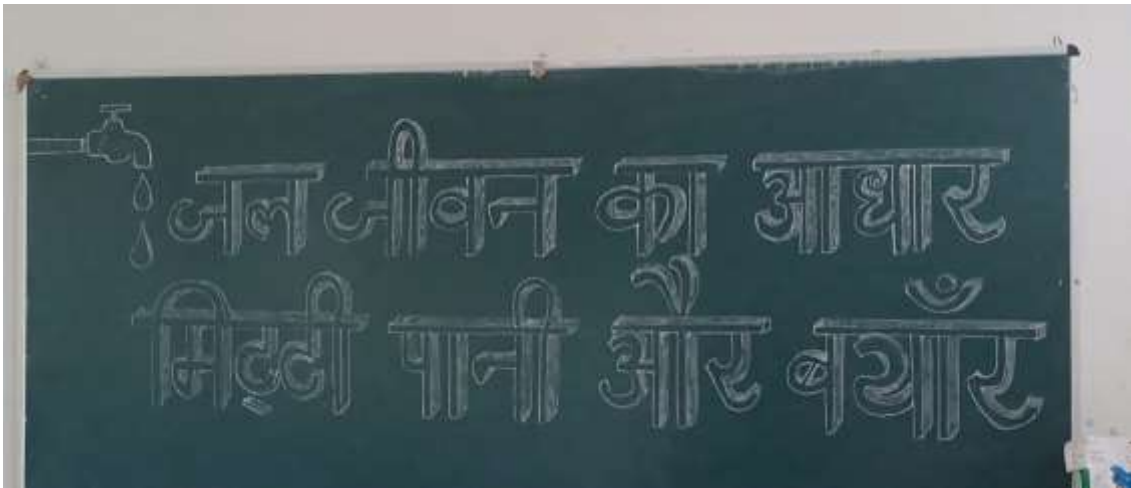 जल जीवन का आधार
मिट्टी पानी और बयाँर